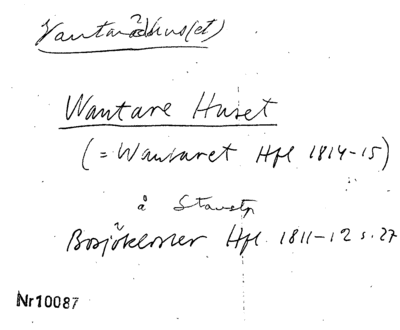 Wantare Huset
(= Wantaret Hfl 1814-15)
å Stavstp
Bosjökloster Hfl. 1811-12 s. 27
Nr10087